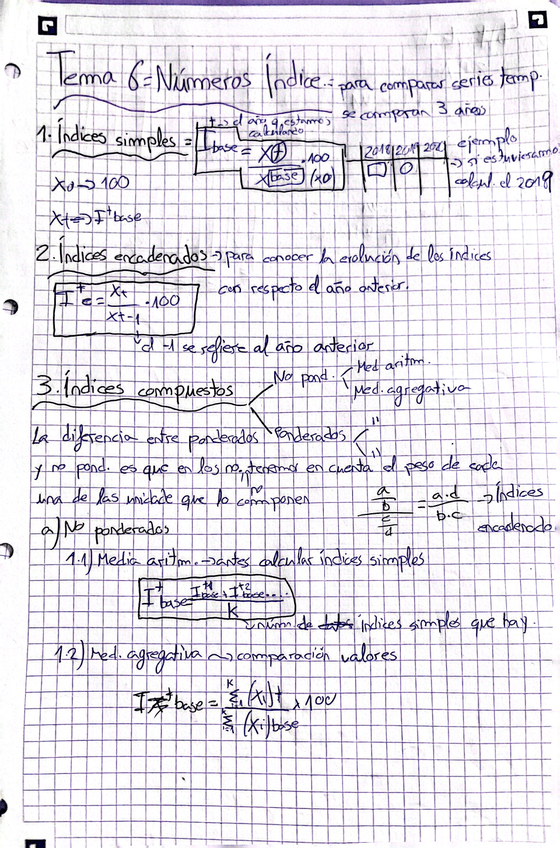 Tema 6 = Números Índice.: para comparar series temp.
se comparan 3 años
t → el año q estamos calculando
1. Índices simples = I base = x(t) / x base (x0) · 100
2018 2019 2021
ejemplo
→ si estuvieramos
calcul. el 2019
X0 → 100
Xt => I^t base
2. Índices encadenados → para conocer la evolución de los índices
con respecto el año anterior.
I^t e = Xt / Xt-1 · 100
el -1 se refiere al año anterior
3. Índices compuestos
No pond. Med aritm.
Med. agregativa
Ponderados " "
La diferencia entre ponderados
y no pond. es que en los no, tenemos en cuenta el peso de cada
no
una de las unidade que lo componen
a/b / c/d = a·d / b·c → Índices
encadenado.
a) No ponderados
1.1) Media aritm. → antes calcular índices simples
I^t base = I^t1 base + I^t2 base.... / K
núm. de índices simples que hay.
1.2) Med. agregativa ~> comparación valores
I^t base = Σ^K i=1 (Xi)t / Σ^K i=1 (Xi)base × 100